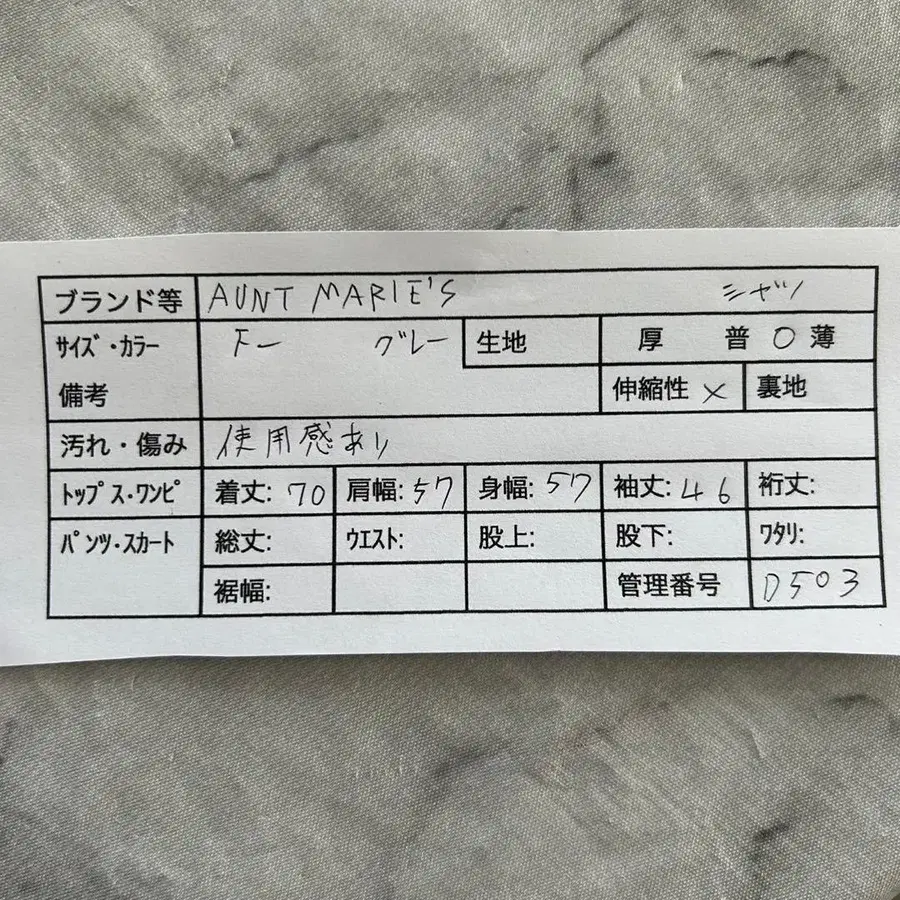 ブランド等 AUNT MARIE'S シャツ
サイズ・カラー グレー 生地 厚 普 ○ 薄
備考 伸縮性 × 裏地
汚れ・傷み 使用感あり
トップス・ワンピ 着丈: 70 肩幅: 57 身幅: 57 袖丈: 46 裄丈:
パンツ・スカート 総丈: ウエスト: 股上: 股下: ワタリ:
裾幅: 管理番号 D503